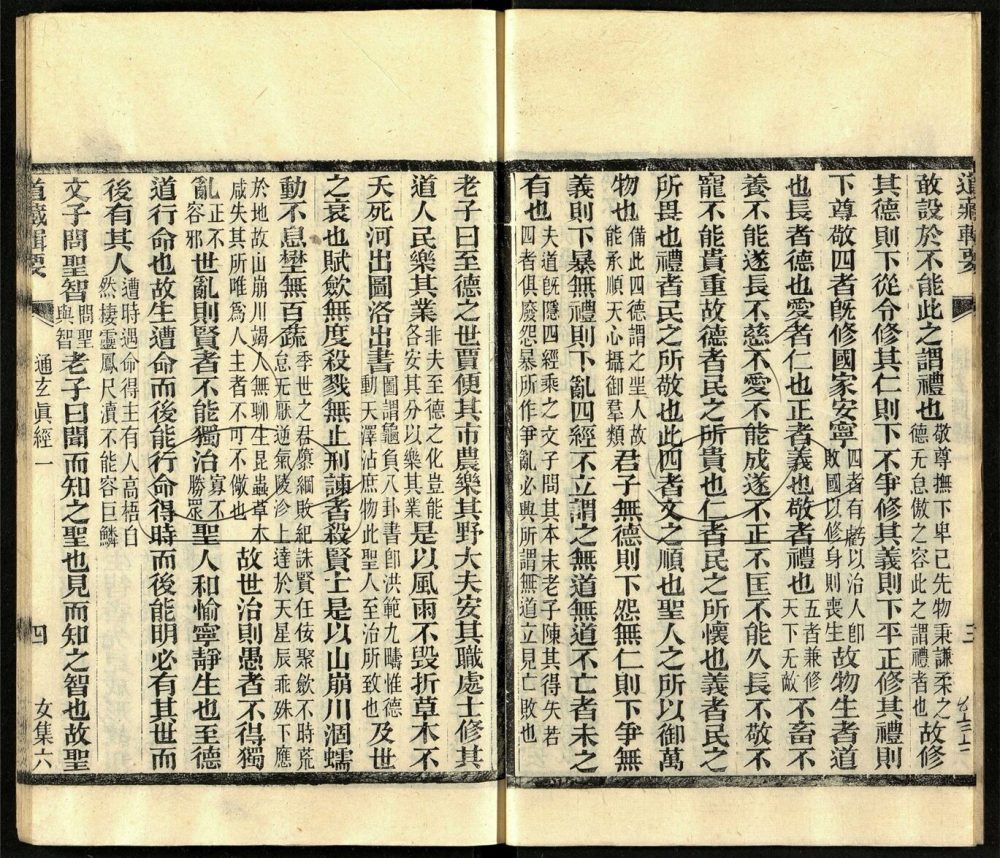 道藏輯要
三
敢設於不能此之謂禮也敬尊撫下卑己先物秉謙柔之德无怠傲之容此之謂禮者也故修
其德則下從令修其仁則下不爭修其義則下平正修其禮則
下尊敬四者旣修國家安寧四者有虧以治人卽敗國以修身則喪生故物生者道
也長者德也愛者仁也正者義也敬者禮也五者兼修天下无敵不畜不
養不能遂長不慈不愛不能成遂不正不匡不能久長不敬不
寵不能貴重故德者民之所貴也仁者民之所懷也義者民之
所畏也禮者民之所敬也此四者文之順也聖人之所以御萬
物也備此四德謂之聖人故能承順天心攝御羣類君子無德則下怨無仁則下爭無
義則下暴無禮則下亂四經不立謂之無道無道不亡者未之
有也夫道旣隱四經乘之文子問其本末老子陳其得失若四者俱廢怨暴所作爭亂必興所謂無道立見亡敗也
老子曰至德之世賈便其市農樂其野大夫安其職處士修其
道人民樂其業非夫至德之化豈能各安其分以樂其業是以風雨不毀折草木不
夭死河出圖洛出書圖謂龜負八卦書卽洪範九疇惟德動天澤沾庶物此聖人至治所致也及世
之衰也賦斂無度殺戮無止刑諫者殺賢士是以山崩川涸蠕
動不息壄無百蔬季世之君隳綱敗紀誅賢任佞聚斂不時荒怠无厭逆氣陵沴上達於天星辰乖殊下應
於地故山崩川竭人無聊生昆蟲草木咸失其所唯爲人主者不可不儆也故世治則愚者不得獨
亂正不容邪世亂則賢者不能獨治寡不勝眾聖人和愉寧靜生也至德
道行命也故生遭命而後能行命得時而後能明必有其世而
後有其人遭時遇命得主有人高梧自然棲靈鳳尺瀆不能容巨鱗
文子問聖智問聖與智老子曰聞而知之聖也見而知之智也故聖
道藏輯要
通玄眞經一
四
女集六